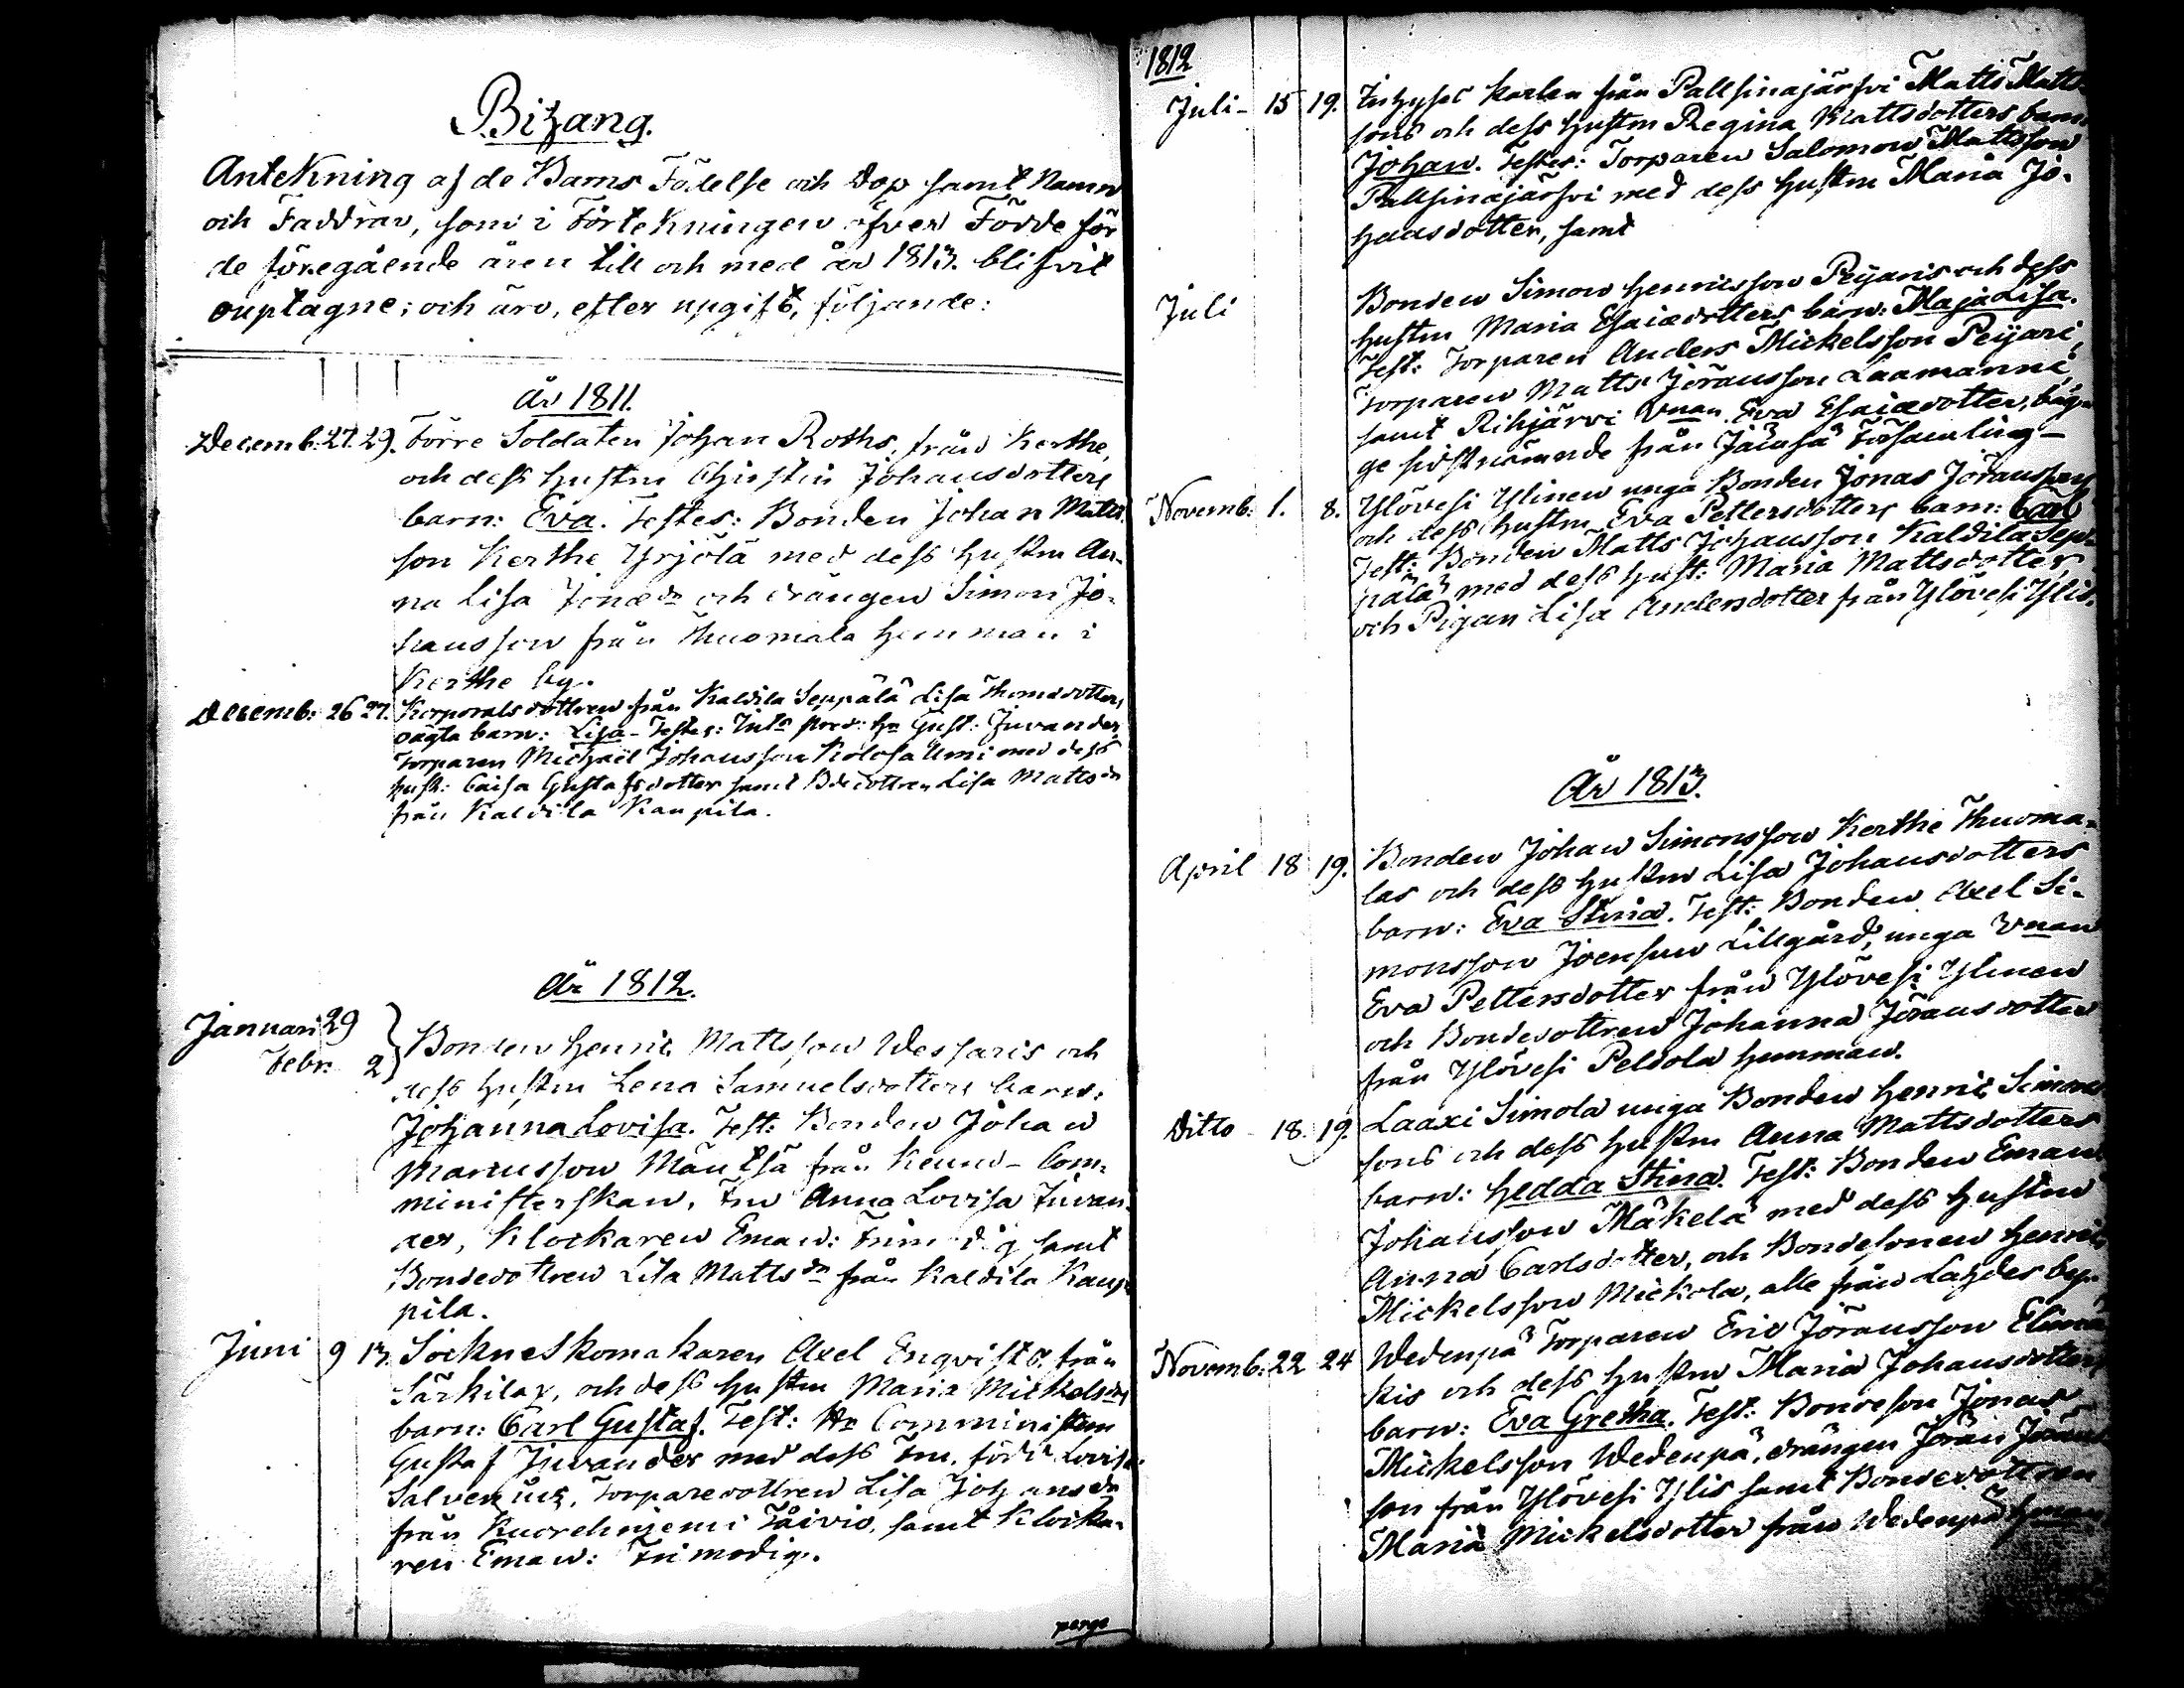 Bihang.
Antekning af de Barns Födelse och Dop samt Namn
och Faddrar, som i Förtekningen öfver Födde för
de föregående åren till och med år 1813. blifvit
ouptagne; och äro, efter upgift, följande:
År 1811.
Decemb. 27. 29. Förre Soldaten Johan Roths, från Kerthe,
och dess hustru Christin Johansdotters
barn: Eva. Testes: Bonden Johan Matts
son Kerthe Yrjölä med dess hustru An-
na Lisa Jonæ dr och drängen Simon Jo-
hansson från Thuomala hemman i
Kerthe by.
Decemb: 26 27. Korporalsdottren från Kaldila Seppälä Lisa Thomædotters
oägta barn: Lisa - Testes: Hr Gust: Juvander
Torparen Michaël Johansson Kolosalmi med dess
hust: Caisa Gustafsdotter samt Bdedottren Lisa Matts dr
från Kaldila Kaupila.
År 1812.
Januari 29
Febr. 2
Bonden Henric Mattsson Wessaris och
dess hustru Lena Samuelsdotters barn:
Johanna Lovisa. Test: Bonden Johan
Marcusson Mäntsä från Com-
ministerskan, Fru Anna Lovisa Juvan-
der, Klockaren Eman: Frimodig samt
Bondedottren Lisa Matts dr från Kaldila Kaup-
pila.
Juni 9 13. Sockneskomakaren Axel Enqvists från
Särkilax, och dess hustru Maria Mickelsdrs
barn: Carl Gustaf. Test: Hr Comministern
Gustaf Juvander med dess Fru, född Lovisa
Salvenius, Torparedottren Lisa Johans dr
från Kuorehniemi Tåivio, samt Klocka-
ren Eman: Frimodig.
perge
1812
Juli - 15 19. Inhyses karlen från Pallsinajärfvi Matts Matts-
sons och dess hustru Regina Mattsdotters barn:
Johan. Testes: Torparen Salomon Mattsson
Pallsinajärfvi med dess hustru Maria Jo-
hansdotter, samt
Juli Bonden Simon Henricsson Peijaris och dess
hustru Maria Esaiædotters barn: Maja Lisa.
Test: Torparen Anders Mickelsson Peijari,
Torparen Matts Jöransson Laamanni
samt Rihjärvi Vnan Eva Esaiædotter, bäg-
ge sidstnämnde från Jämsä Församling -
Novemb: 1. 8. Ylövesi Ylinen unga Bonden Jonas Jöranssons
och dess hustru Eva Pettersdotters barn: Carl
Test: Bonden Matts Johansson Kaldila Sep-
pälä med dess hust: Maria Mattsdotter,
och Pigan Lisa Andersdotter från Ylövesi Ylis.
År 1813.
April 18 19. Bonden Johan Simonsson Kerthe Thuoma-
las och dess hustru Lisa Johansdotters
barn: Eva Stina. Test: Bonden Axel Si-
monsson Joensuu Lillgård, unga Vnan
Eva Pettersdotter från Ylövesi Ylinen
och Bondedottren Johanna Jöransdotter
från Ylövesi Peldola hemman.
Ditto - 18. 19. Laaxi Simola unga Bonden Henric Simons
sons och dess hustru Anna Mattsdotters
barn: Hedda Stina. Test: Bonden Eman:
Johansson Mäkelä med dess hustru
Anna Carlsdotter, och Bondesonen Henric
Mickelsson Mickola, alle från Lahdes by.
Novemb: 22 24 Wedenpä Torparen Eric Jöransson
kis och dess hustru Maria Johansdotters
barn: Eva Gretha. Test: Bondeson Jonas
Mickelsson Wedenpä, drängen Jöran Jörans
son från Ylövesi Ylis samt Bondedottren
Maria Mickelsdotter från Wedenpä